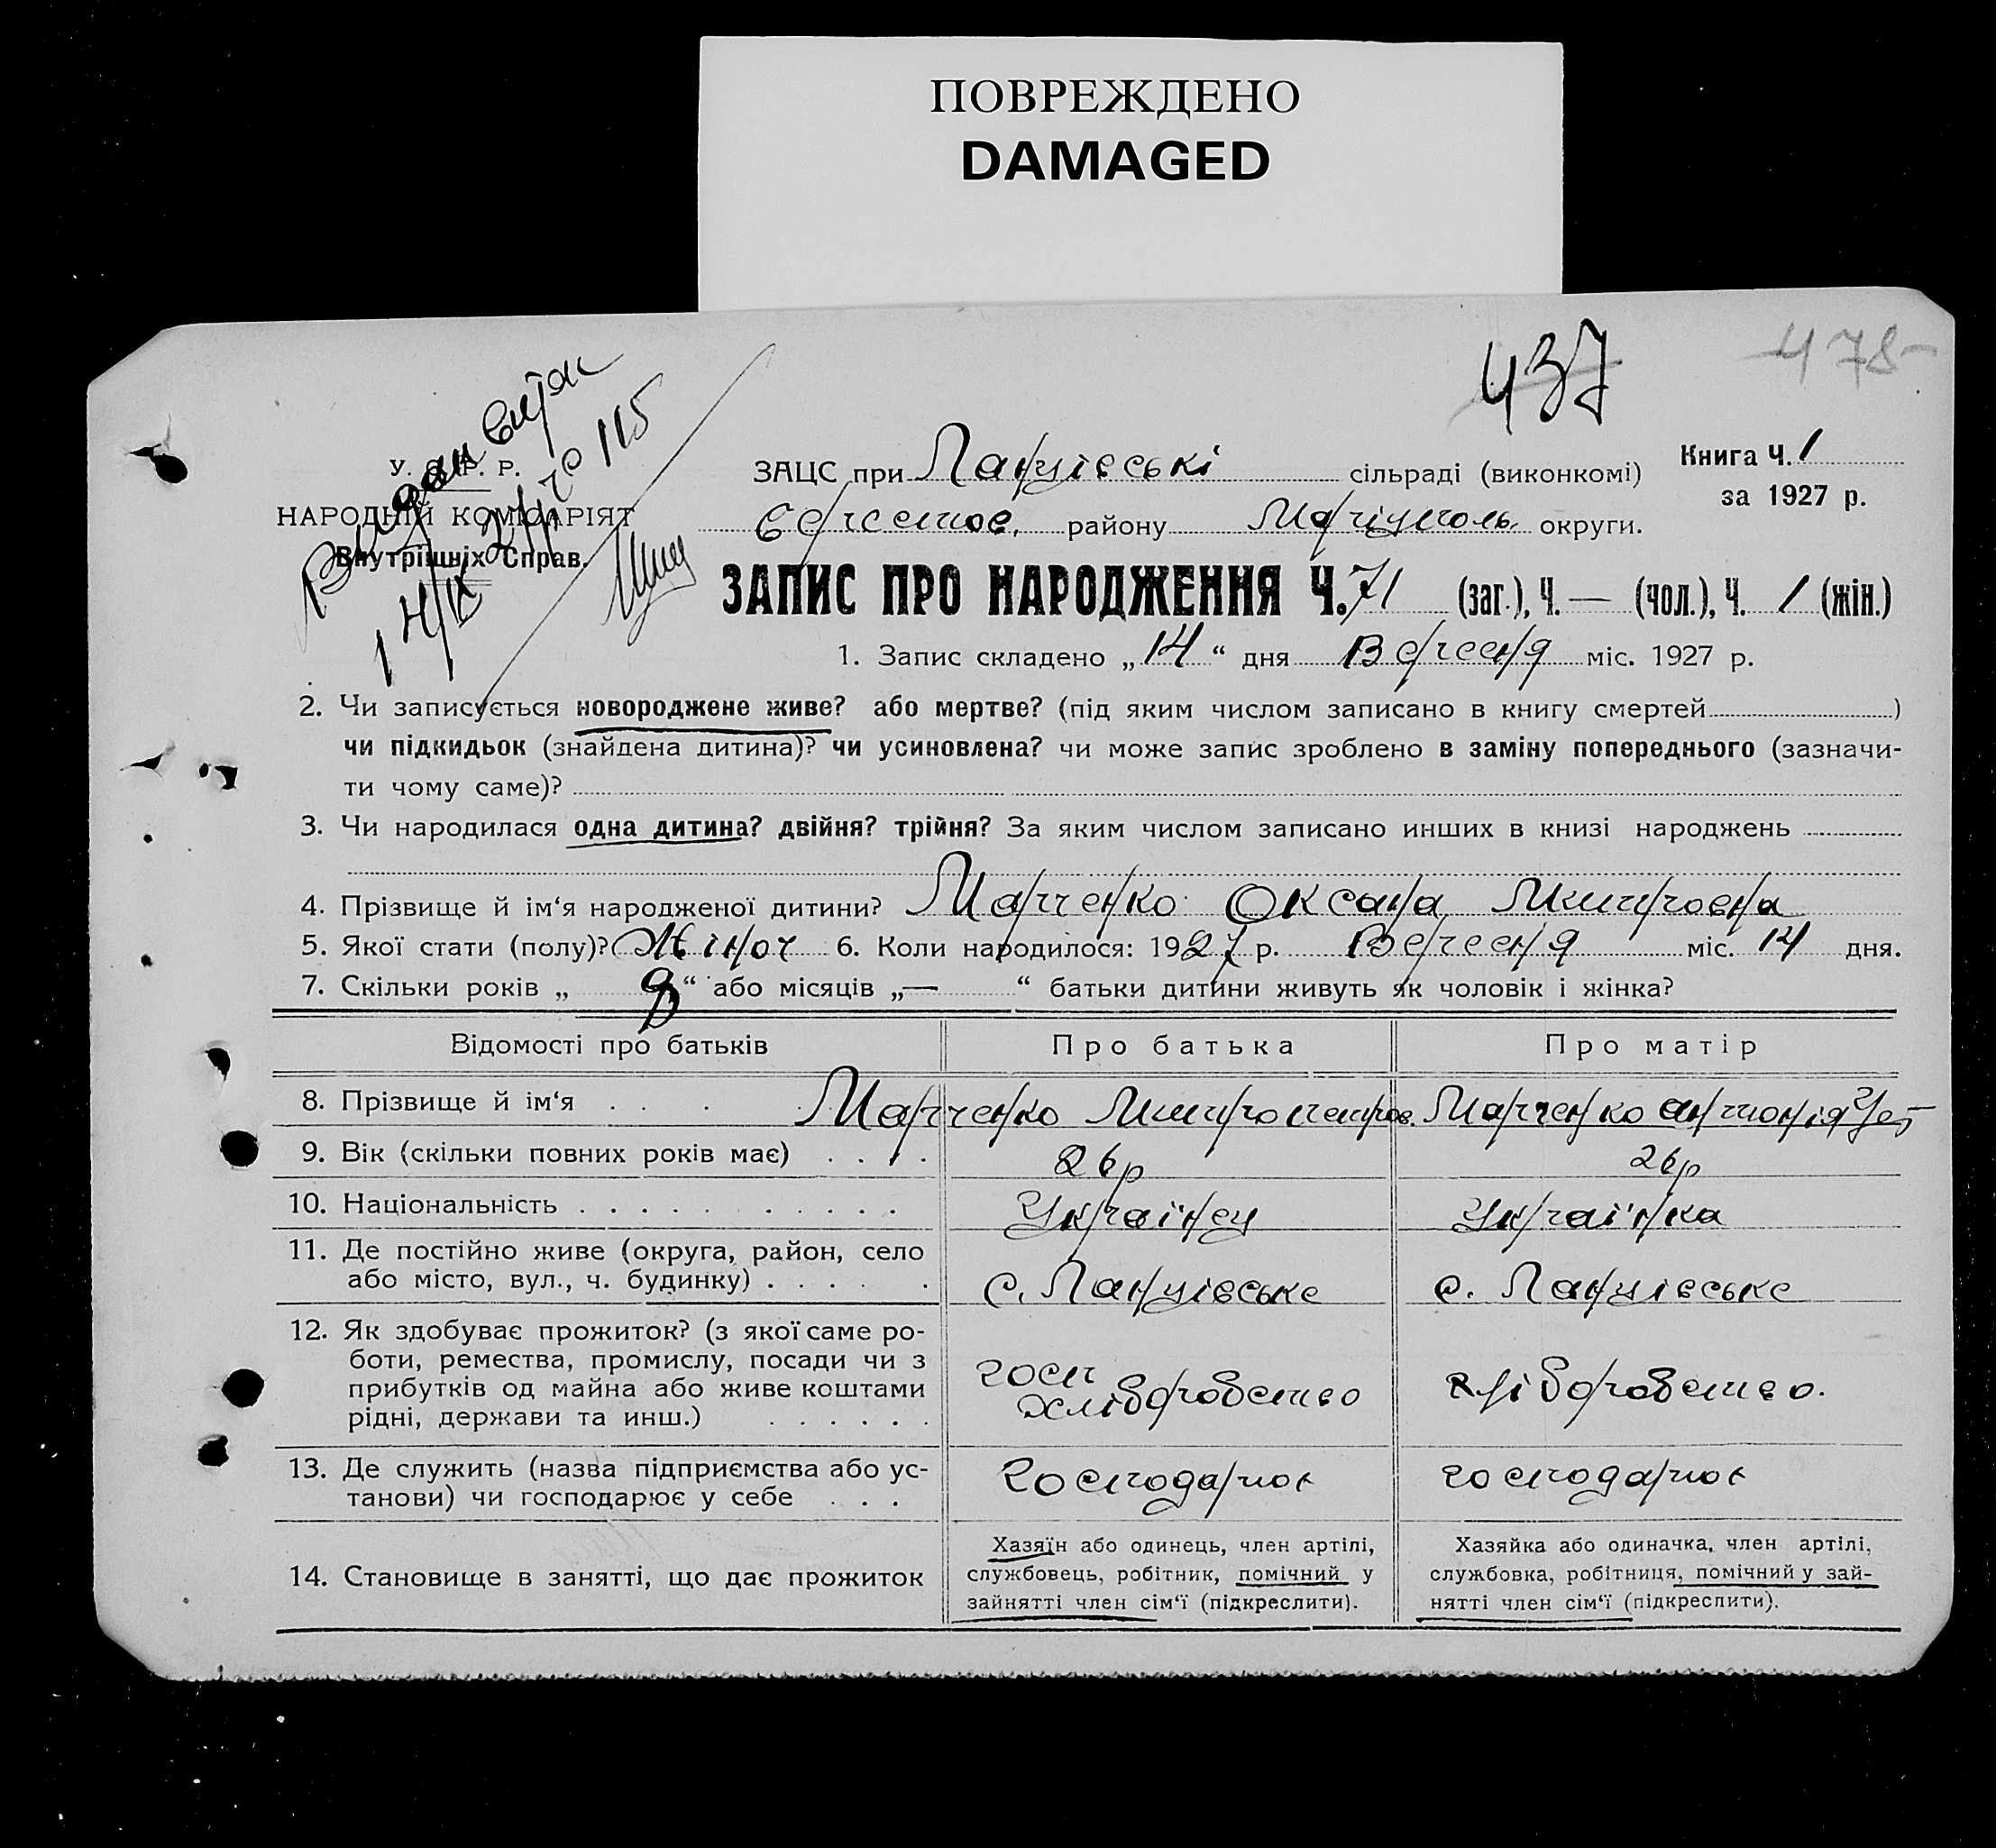 ПОВРЕЖДЕНО
DAMAGED
437
478
У. С. Р. Р.
НАРОДНІЙ КОМІСАРІЯТ
Внутрішніх Справ.
Видан витяг
14/IX 27 № 115
ЗАЦС при Ланцівські сільраді (виконкомі)
Книга Ч. 1
за 1927 р.
району Маріуполь. округи.
ЗАПИС ПРО НАРОДЖЕННЯ Ч. 71 (заг.), Ч. — (чол.), Ч. 1 (жін.)
1. Запис складено „14“ дня Вересня міс. 1927 р.
2. Чи записується новороджене живе? або мертве? (під яким числом записано в книгу смертей )
чи підкидьок (знайдена дитина)? чи усиновлена? чи може запис зроблено в заміну попереднього (зазначи-
ти чому саме)?
3. Чи народилася одна дитина? двійня? трійня? За яким числом записано инших в книзі народжень
4. Прізвище й ім‘я народженої дитини? Марченко Оксана Митровна
5. Якої стати (полу)? Жіноч 6. Коли народилося: 1927 р. Вересня міс. 14 дня.
7. Скільки років „ “ або місяців „— “ батьки дитини живуть як чоловік і жінка?
Відомості про батьків Про батька Про матір
8. Прізвище й ім‘я . . . . Марченко Митро петров. Марченко антонія
9. Вік (скільки повних років має) . . . . 26р 26р
10. Національність . . . . . . . . . . Українец Українка
11. Де постійно живе (округа, район, село
або місто, вул., ч. будинку) . . . . . с. Ланцівське с. Ланцівське
12. Як здобуває прожиток? (з якої саме ро-
боти, ремества, промислу, посади чи з
прибутків од майна або живе коштами
рідні, держави та инш.) . . . . . .
хліборобство хліборобство.
13. Де служить (назва підприємства або ус-
танови) чи господарює у себе . . . господарює господарює
14. Становище в занятті, що дає прожиток
Хазяїн або одинець, член артілі,
службовець, робітник, помічний у
зайнятті член сім‘ї (підкреслити).
Хазяйка або одиначка, член артілі,
службовка, робітниця, помічний у зай-
нятті член сім‘ї (підкреслити).